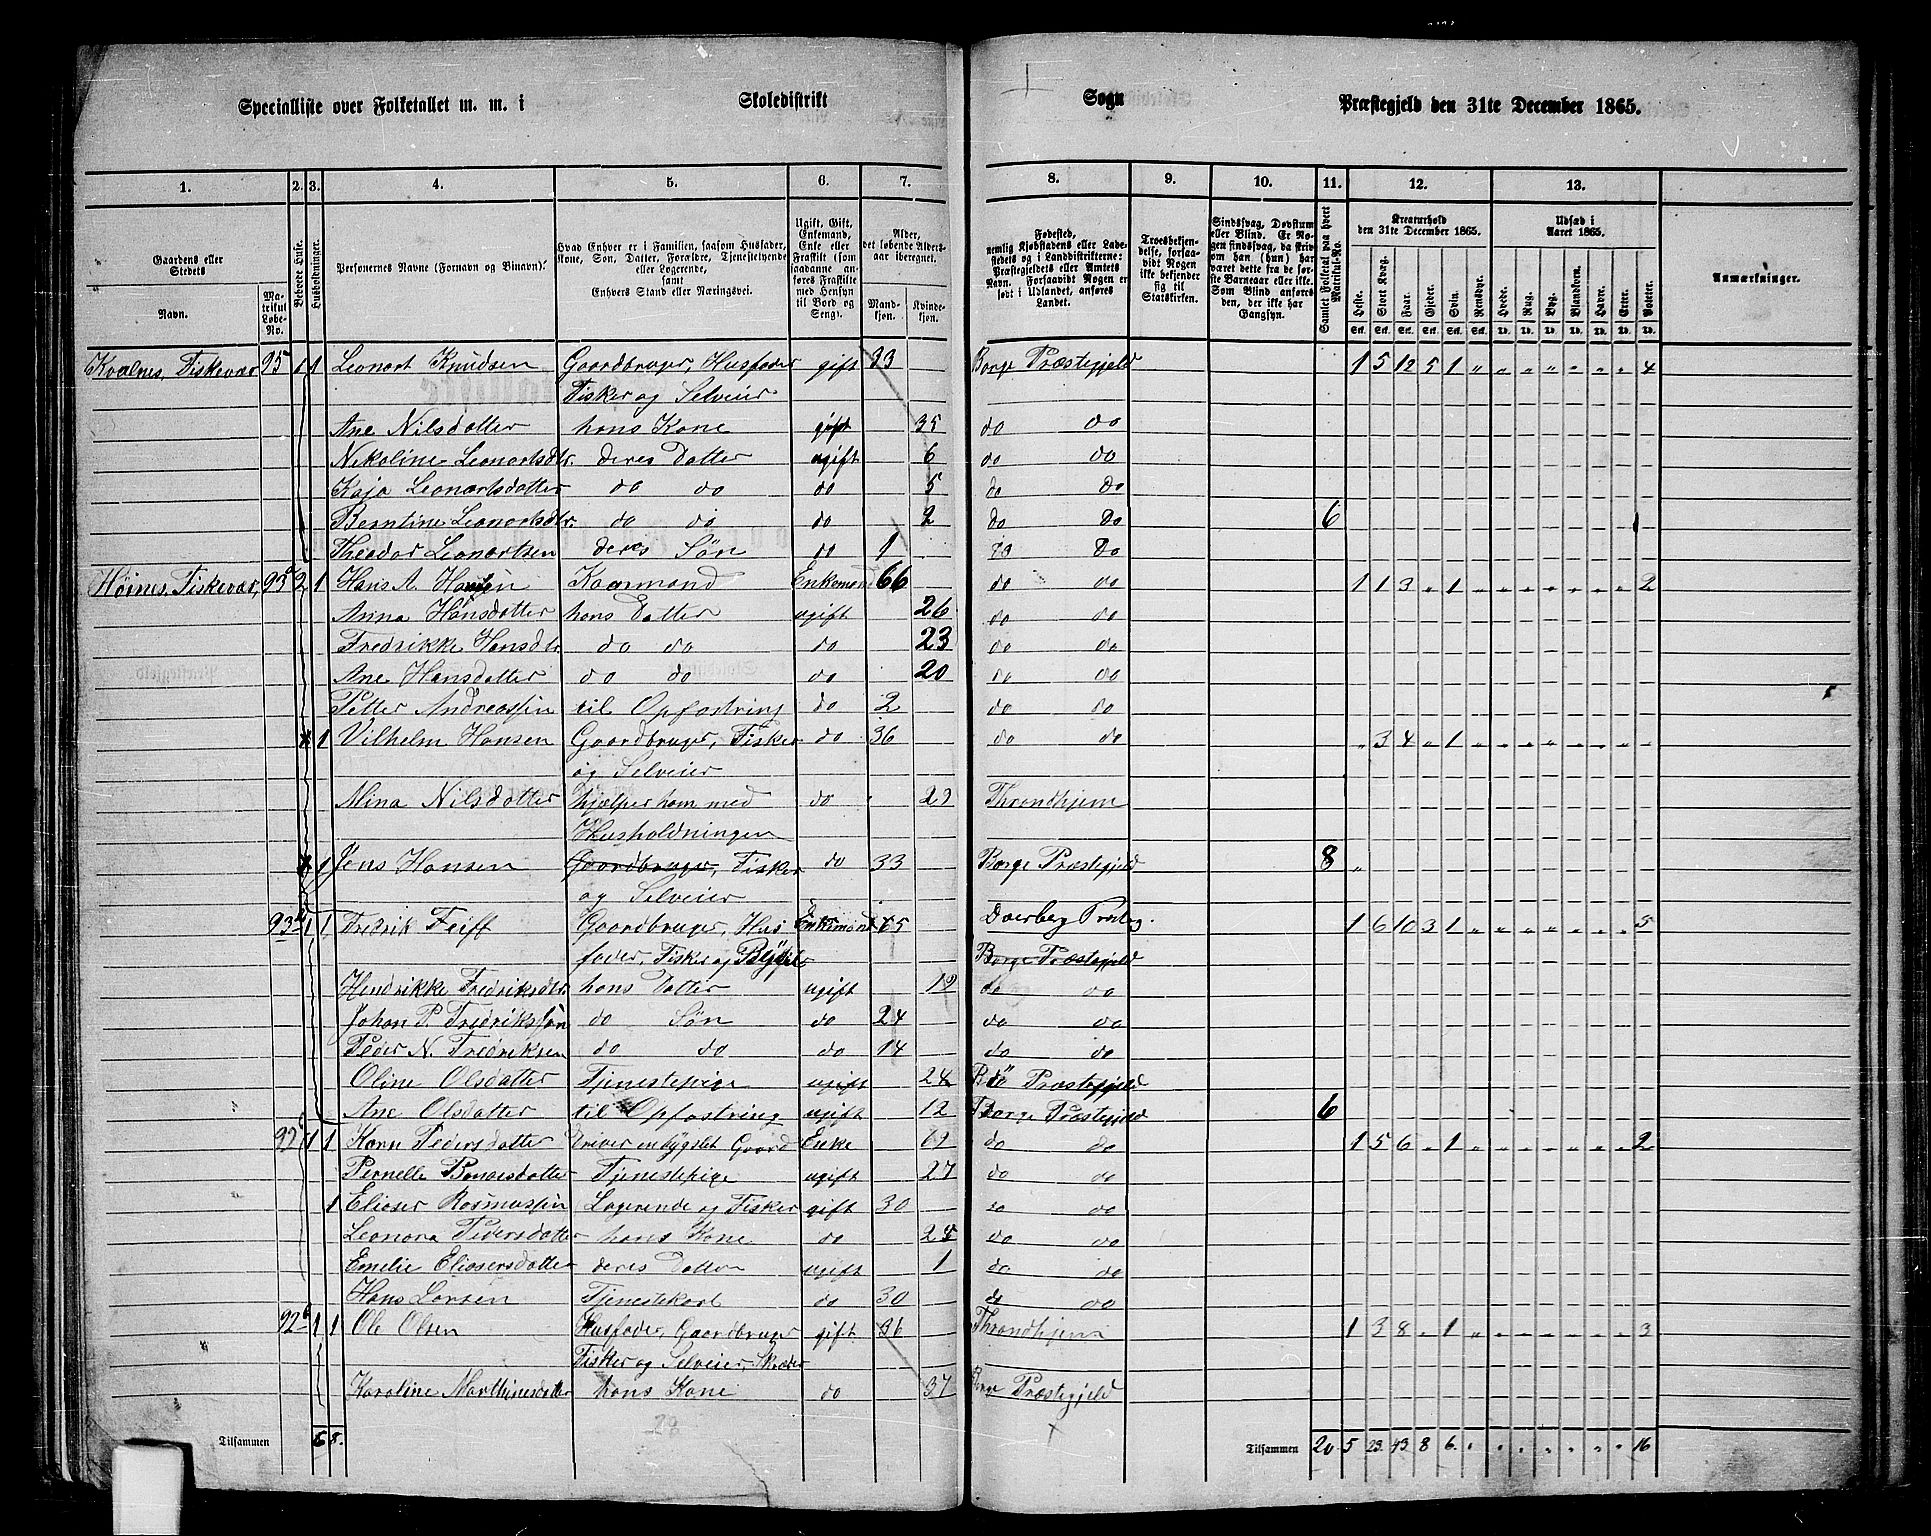 Specialliste over Folketallet m. m. i Skoledistrikt Sogn Præstegjeld den 31te December 1865.
1. 2. 3. 4. 5. 6. 7. 8. 9. 10. 11. 12. 13.
Gaardens eller Stedets
Navn.
Matrikul Løbe-No.
Beboede Huse.
Husholdninger.
Personernes Navne (Fornavn og Binavn).
Hvad Enhver er i Familien, saasom Husfader, Kone, Søn, Datter, Forældre, Tjenestetyende eller Logerende,
samt
Enhvers Stand eller Næringsvei.
Ugift, Gift, Enkemand, Enke eller Fraskilt (som saadanne anføres Fraskilte med Hensyn til Bord og Seng).
Alder, det løbende Aldersaar iberegnet.
Mandkjøn.
Kvindekjøn.
Fødested,
nemlig Kjøbstadens eller Ladestedets og i Landdistrikterne: Præstegjeldets eller Amtets Navn. Forsaavidt Nogen er født i Udlandet, anføres Landet.
Troesbekjendelse, forsaavidt Nogen ikke bekjender sig til Statskirken.
Sindssvag, Døvstum eller Blind. Er Nogen sindssvag, da skrives om han (hun) har været dette fra de første Barneaar eller ikke. Som Blind anføres den, der ikke har Gangsyn.
Samlet Folketal paa hvert Matrikul-No.
Kreaturhold den 31te December 1865.
Heste. Stort Kvæg. Faar. Gjeder. Svin. Rensdyr.
Udsæd i Aaret 1865.
Hvede. Rug. Byg. Blandkorn. Havre. Erter. Poteter.
Anmærkninger.
Kvalnes, Fiskevær 95 1 1 Leonart Knudsen Gaardbruger, Husfader gift 33 Borge Præstegjeld 1 5 12 5 1 " " " " " " " 4
Fisker og Selveier
Ane Nilsdatter hans Kone gift 35 do do
Nikoline Leonartsdtr. deres Datter ugift 6 do do
Kaja Leonartsdatter do do do 5 do do
Berntine Leonartsdtr. do do do 2 do do 6
Theodor Leonartsen deres Søn do 1 do do
Høines, Fiskevær, 93 2 1 Hans A. Hansen Kaarmand Enkemand 66 do do 1 1 3 " 1 " " " " " " " 2
Anna Hansdatter hans Datter ugift 26 do do
Fredrikke Hansdtr do do do 23 do do
Ane Hansdatter do do do 20 do do
Petter Andreassen til Opfostring do 2 do do
1 Vilhelm Hansen Gaardbruger, Fisker do 36 do do " 3 4 " 1 " " " " " " " "
og Selveier
Mina Nilsdatter hjælper ham med do 29 Throndhjem
Husholdningen
1 Jens Hansen Gaardbruger, Fisker do 33 Borge Præstegjeld 8 "
og Selveier
93 1 1 Fredrik Feiff Gaardbruger, Hus Enkemand 65 1 6 10 3 1 " " " " " " " 5
fader, Fisker og Borge Præstegjeld
Hendrikke Fredriksdtr. hans Datter ugift 19 do do
Johan P. Fredrikssøn do Søn do 24 do do
Peder N. Fredriksen do do do 14 do do
Oline Olsdatter Tjenestepige ugift 24 Bö Præstegjeld
Ane Olsdatter til Opfostring ugift 12 Borge Præstegjeld 6
92 1 1 Karn Pedersdatter driver en bygslet Gaard Enke do do 1 5 6 " 1 " " " " " " " 2
Pernelle Tjenestepige ugift 27 do do
1 Elioser Rasmussen Logerende og Fisker gift 30 do do
Leonora Pedersdatter hans Kone do 25 do do
Emelie Eliosersdatter deres Datter ugift 1 do do
Hans Larsen Tjenestekarl do 30 do do
92 b 1 1 Ole Olsen Husfader, Gaardbruger gift 36 Throndhjem 1 3 8 " 1 " " " " " " " 3
Fisker og Selveier, Skræder
Karoline Marthinesdatter hans Kone do 37 Borge Præstegjeld
28
Tilsammen 6 8. Tilsammen 20 5 23. 43 8 6. " " " " " " " 16